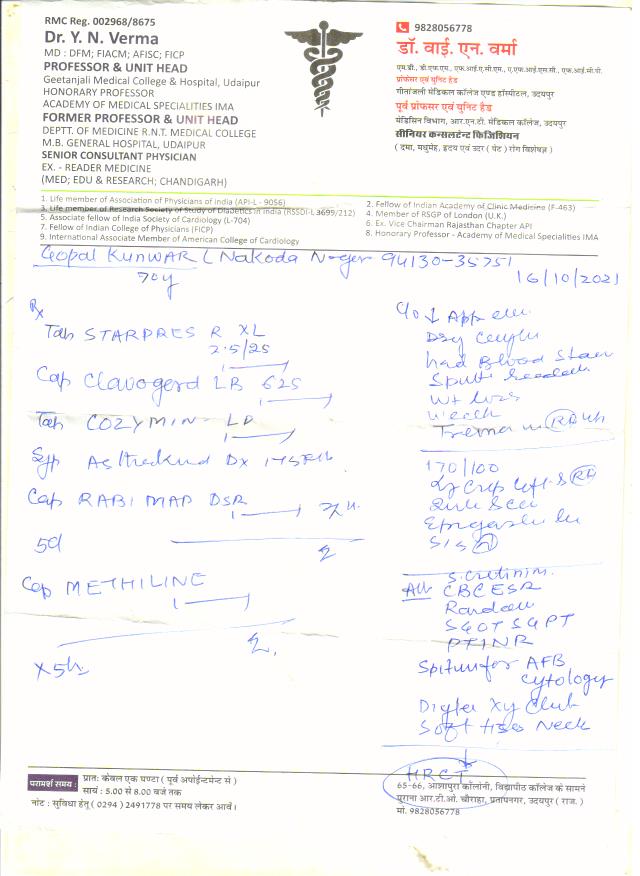 RMC Reg. 002968/8675
Dr. Y. N. Verma
MD : DFM; FIACM; AFISC; FICP
PROFESSOR & UNIT HEAD
Geetanjali Medical College & Hospital, Udaipur
HONORARY PROFESSOR
ACADEMY OF MEDICAL SPECIALITIES IMA
FORMER PROFESSOR & UNIT HEAD
DEPTT. OF MEDICINE R.N.T. MEDICAL COLLEGE
M.B. GENERAL HOSPITAL, UDAIPUR
SENIOR CONSULTANT PHYSICIAN
EX. - READER MEDICINE
(MED; EDU & RESEARCH; CHANDIGARH)
9828056778
डॉ. वाई. एन. वर्मा
एम.डी., डी.एफ.एम., एफ.आई.ए.सी.एम., ए.एफ.आई.एस.सी., एफ.आई.सी.पी.
प्रोफेसर एवं यूनिट हैड
गीतांजली मेडिकल कॉलेज एण्ड हॉस्पीटल, उदयपुर
पूर्व प्रोफसर एवं यूनिट हैड
मेडिसिन विभाग, आर.एन.टी. मेडिकल कॉलेज, उदयपुर
सीनियर कन्सलटेन्ट फिजिशियन
( दमा, मधुमेह, हृदय एवं उदर ( पेट ) रोग विशेषज्ञ )
1. Life member of Association of Physicians of India (API-L - 9056)
2. Fellow of Indian Academy of Clinic Medicine (F-463)
3. Life member of Research Society of Study of Diabetics in India (RSSDI-L 3699/212)
4. Member of RSGP of London (U.K.)
5. Associate fellow of India Society of Cardiology (L-704)
6. Ex. Vice Chairman Rajasthan Chapter API
7. Fellow of Indian College of Physicians (FICP)
8. Honorary Professor - Academy of Medical Specialities IMA
9. International Associate Member of American College of Cardiology
Gopal KUNWAR ( Nakoda Nager 94130-35751
70y
16/10/2021
Rx
Tab STARPRES R XL
2.5/25
Cap Clavogerd LB 625
Tab COZYMIN- LD
Syp Dx
Cap RABI MAP DSR
5d
2
Cap METHILINE
2.
C/o ↓ App
Dry Cough
had Blood Stain
Wt loss
170/100
S. creatinin.
Adv CBC ESR
Random
SGOT SGPT
PTINR
Sputum for AFB
cytology
Soft tiss Neck
HRCT
परामर्श समय :
प्रातः केवल एक घण्टा ( पूर्व अपोईन्टमेन्ट से )
सायं : 5.00 से 8.00 बजे तक
नोट : सुविधा हेतु ( 0294 ) 2491778 पर समय लेकर आवें।
65-66, आशापुरा कॉलोनी, विद्यापीठ कॉलेज के सामने
पुराना आर.टी.ओ. चौराहा, प्रतापनगर, उदयपुर ( राज. )
मो. 9828056778